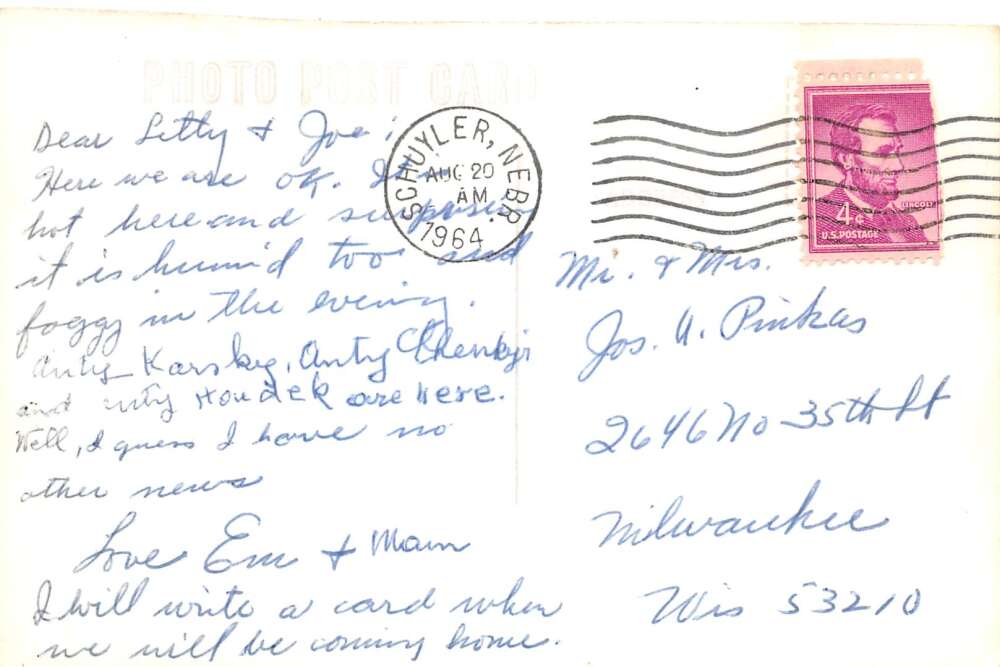 PHOTO POST CARD
Dear Letty & Joe;
Here we are OK. It
hot here and
it is humid too and
foggy in the evening.
Anty Karsky, Anty
and Anty Houdek are Here.
Well, I guess I have no
other news
Love Em & Mam
I will write a card when
we will be coming home.
SCHUYLER, NEBR.
AUG 20
AM
1964
LINCOLN
4¢
U.S. POSTAGE
Mr. & Mrs.
Jos. A. Pinkas
2646 No 35th St
Milwaukee
Wis 53210